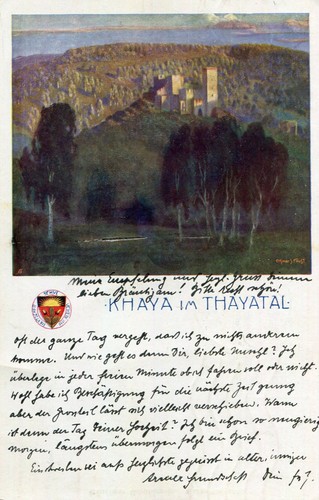 Meine Empfehlung und herzl. Gruss Deinem
lieben Bräutigam! Bitte
KHAYA IM THAYATAL
oft der ganze Tag vergeht, dass ich zu nichts anderem
komme. Und wie geht es denn Dir, liebste Ich
überlege in jeder freien Minute ob ich fahren soll oder nicht.
Wohl habe ich Beschäftigung für die nächste Zeit genug
aber der lässt sich vielleicht verschieben. Wann
ist denn der Tag Deiner Hochzeit? Ich bin schon so neugierig
morgen, längstens übermorgen folgt ein Brief.
Einstweilen sei aufs herzlichste gegrüsst in alter, inniger
Freundschaft Dein